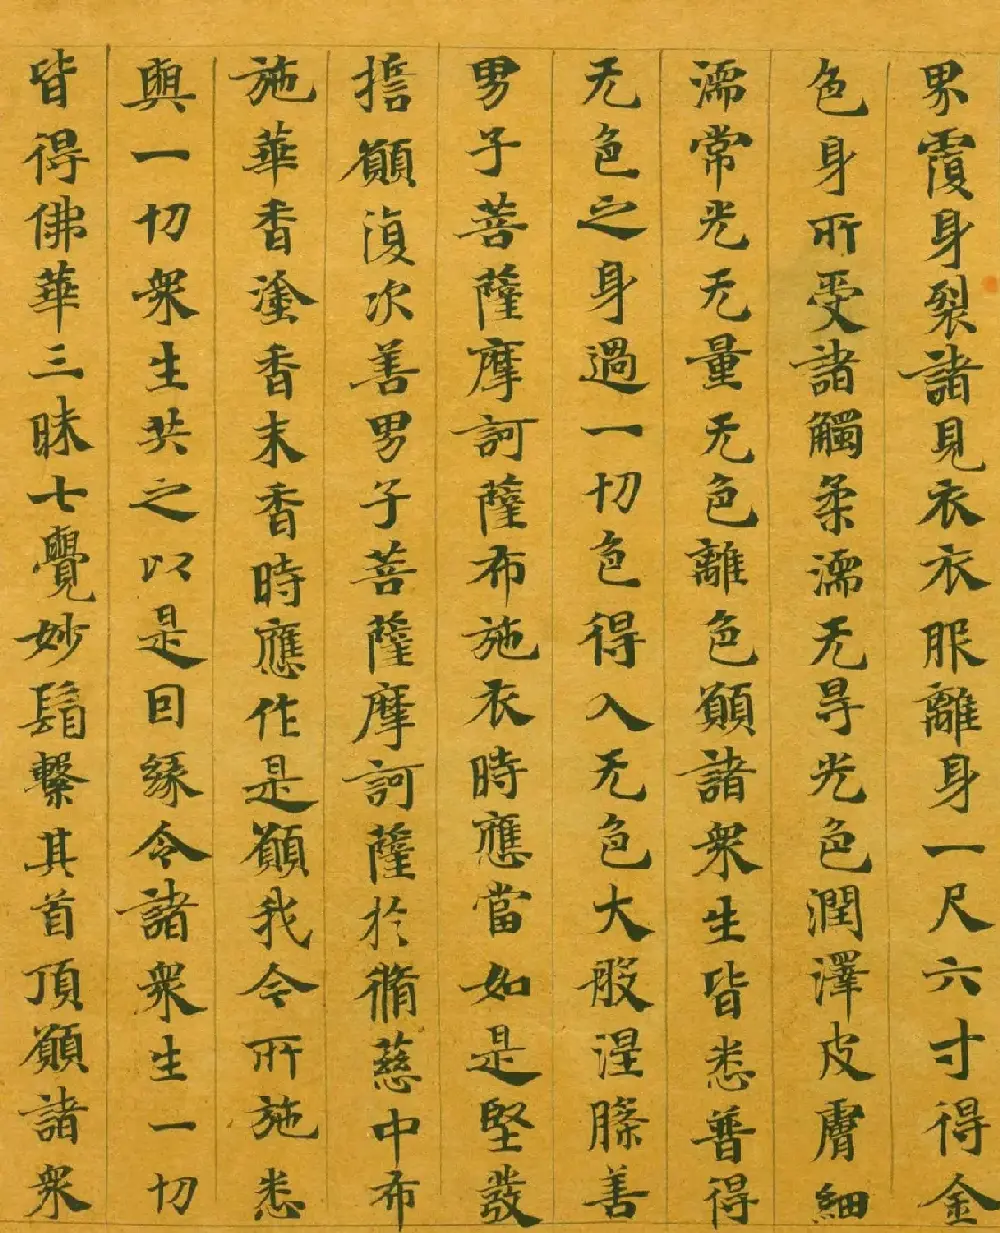 界覆身裂諸見衣衣服離身一尺六寸得金
色身所受諸觸柔濡无㝵光色潤澤皮膚細
濡常光无量无色離色願諸衆生皆悉普得
无色之身過一切色得入无色大般涅槃善
男子菩薩摩訶薩布施衣時應當如是堅發
擔願復次善男子菩薩摩訶薩於脩慈中布
施華香塗香末香時應作是願我今所施悉
與一切衆生共之以是因緣令諸衆生一切
皆得佛華三昧七覺妙鬘繫其首頂願諸衆